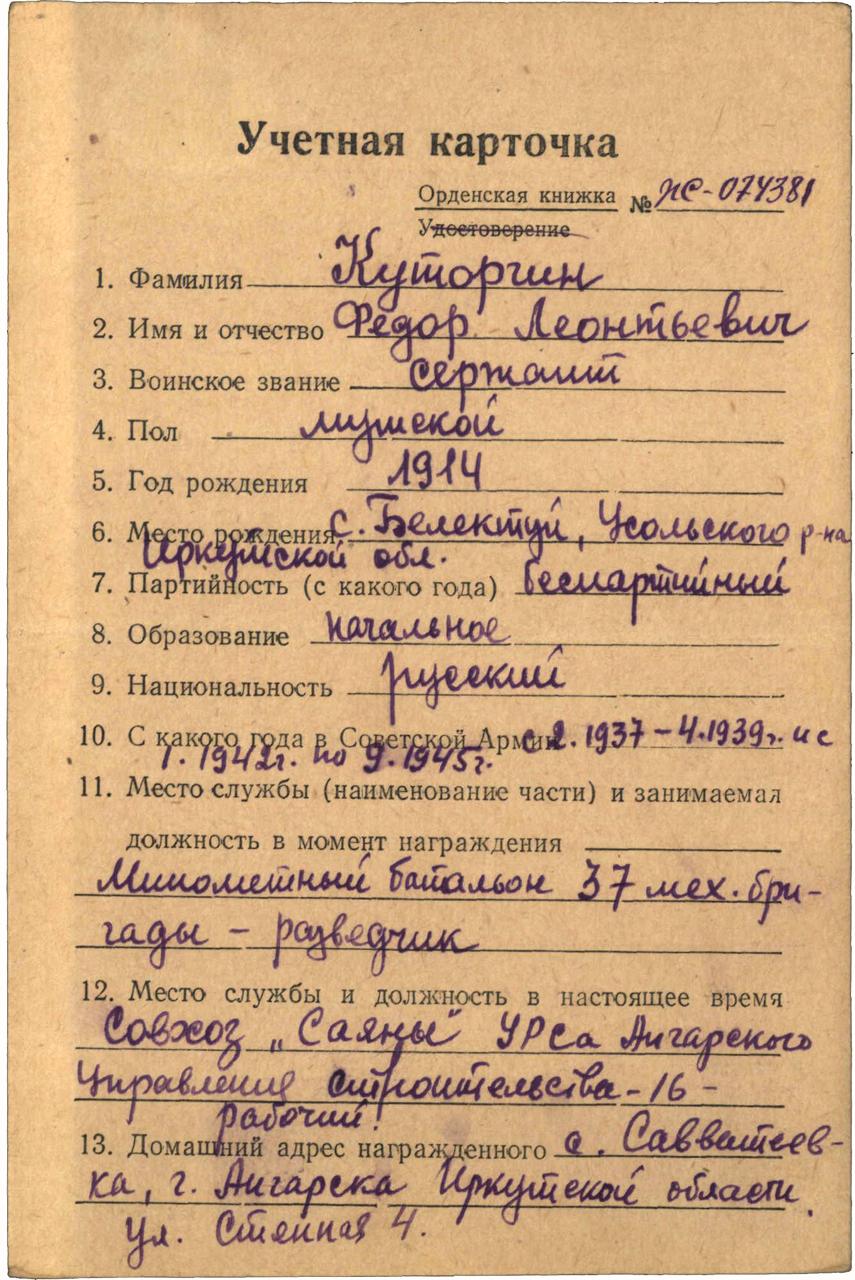 Учетная карточка
Орденская книжка № ЖС-074381
Удостоверение
1. Фамилия Куторгин
2. Имя и отчество Федор Леонтьевич
3. Воинское звание сержант
4. Пол мужской
5. Год рождения 1914
6. Место рождения с. Белектуй, Усольского р-на
Иркутской обл.
7. Партийность (с какого года) беспартийный
8. Образование начальное
9. Национальность русский
10. С какого года в Советской Армии с 2.1937 – 4.1939г. и с
1.1942г. по 9.1945г.
11. Место службы (наименование части) и занимаемая
должность в момент награждения
Минометный батальон 37 мех. бри-
гады – разведчик
12. Место службы и должность в настоящее время
Совхоз „Саяны" УРСа Ангарского
Управления строительства-16 –
рабочий.
13. Домашний адрес награжденного с. Савватеев-
ка, г. Ангарска Иркутской области,
ул. Степная 4.